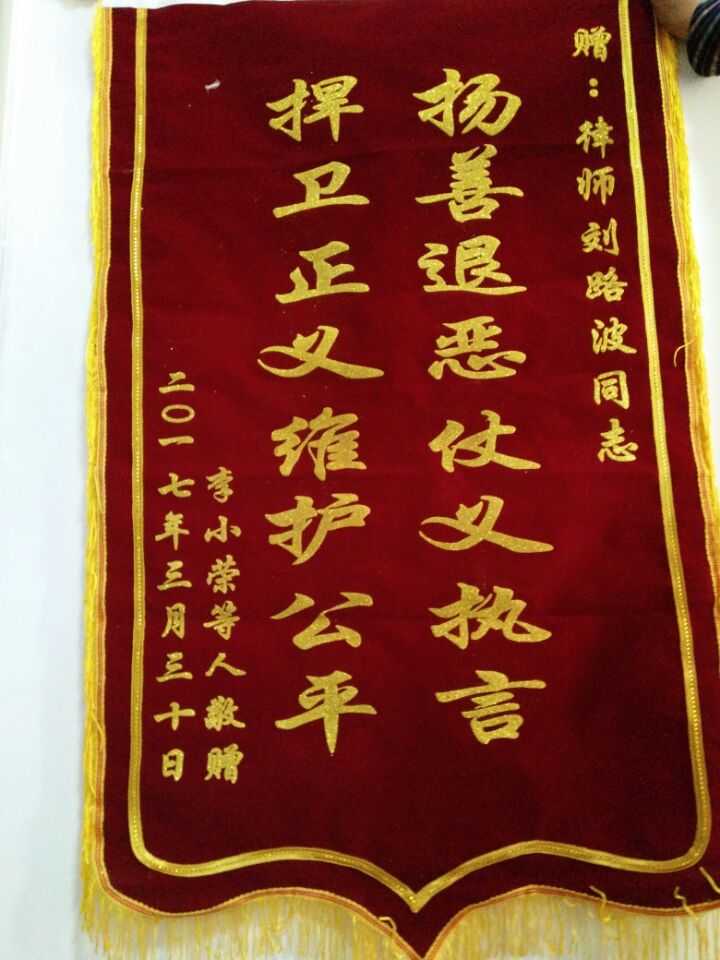 赠：律师刘路波同志
扬善退恶仗义执言
捍卫正义维护公平
李小荣等人敬赠
二〇一七年三月三十日